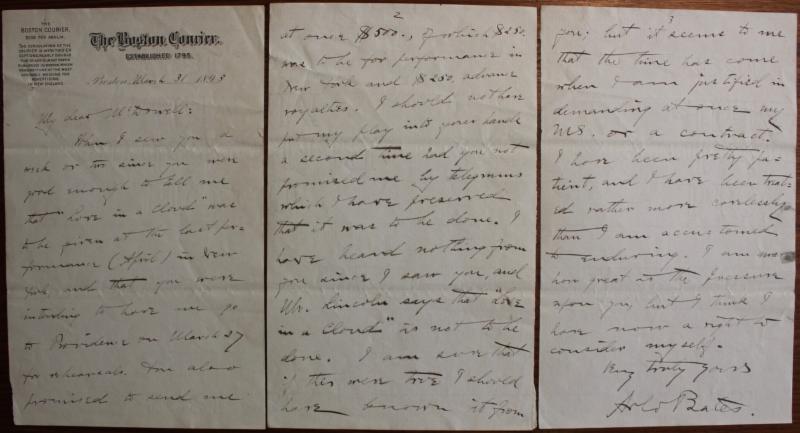 THE
BOSTON COURIER,
$2.50 PER ANNUM.
THE CIRCULATION OF THE
COURIER IS
IN NEW ENGLAND.
The Boston Courier,
ESTABLISHED 1795.
Boston, March 31 1893
My dear McDowell:
When I saw you a
week or two since you were
good enough to tell me
that "Love in a Cloud" was
to be given at the last per-
formance (April) in New
York, and that you were
intending to have me go
to Providence on March 27
for rehearsals. You also
promised to send me
2
at once $500., of which $250.
was to be for performance in
New York and $250. advance
royalties. I should not have
put my play into your hands
a second time had you not
promised me by telegrams
which I have preserved
that it was to be done. I
have heard nothing from
you since I saw you, and
Mr. Lincoln says that "Love
in a Cloud" is not to be
done. I am sure that
if this were true I should
have known it from
3
you; but it seems to me
that the time has come
when I am justified in
demanding at once my
MS. or a contract.
I have been pretty pa-
tient, and I have been treat-
ed rather more carelessly
than I am accustomed
to enduring. I am
how great is the pressure
upon you, but I think I
have now a right to
consider myself.
Very truly yours
Arlo Bates.